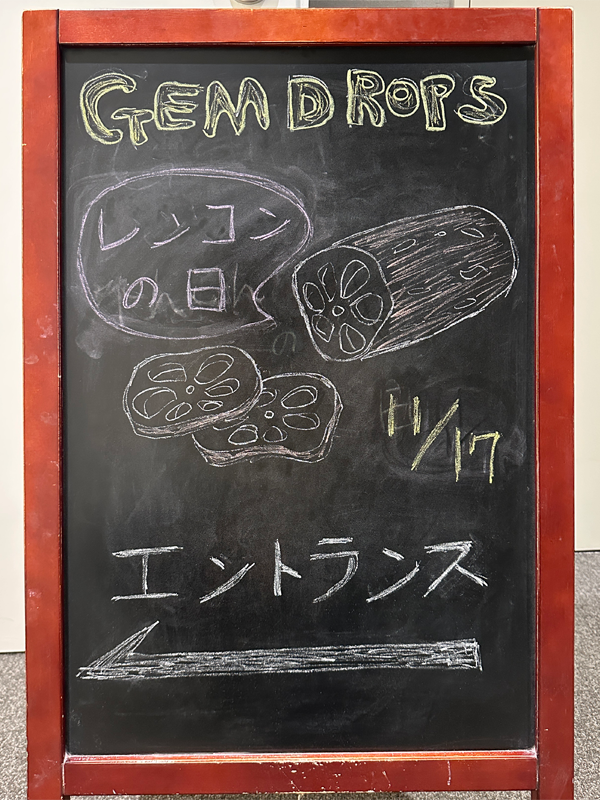 GEMDROPS
レンコン
の日
11/17
エントランス